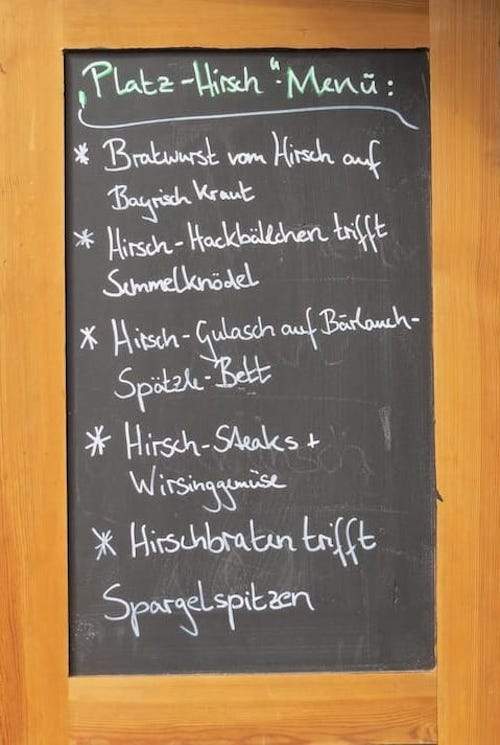 „Platz-Hirsch"-Menü:
* Bratwurst vom Hirsch auf
Bayrisch Kraut
* Hirsch-Hackbällchen trifft
Semmelknödel
* Hirsch-Gulasch auf Bärlauch-
Spätzle-Bett
* Hirsch-Steaks +
Wirsinggemüse
* Hirschbraten trifft
Spargelspitzen